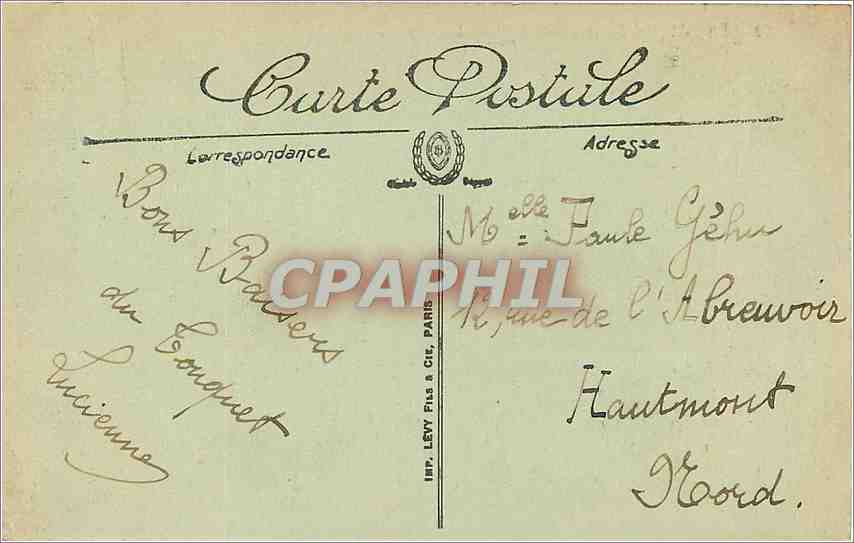 Carte Postale
Correspondance
Adresse
Bons Baisers
du Touquet
Lucienne
CPAPHIL
IMP. LÉVY FILS & CIE, PARIS
Melle Paule Géhu
12, rue de l'Abreuvoir
Hautmont
Nord.